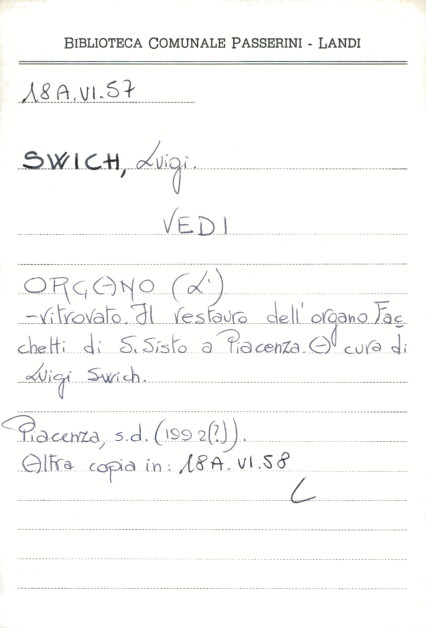 BIBLIOTECA COMUNALE PASSERINI - LANDI
18A.VI.57
SWICH, Luigi.
VEDI
ORGANO (L')
-ritrovato. Il restauro dell'organo Fac
chetti di S. Sisto a Piacenza. A cura di
Luigi Swich.
Piacenza, s.d. (1992(?)).
Altra copia in: 18A.VI.58